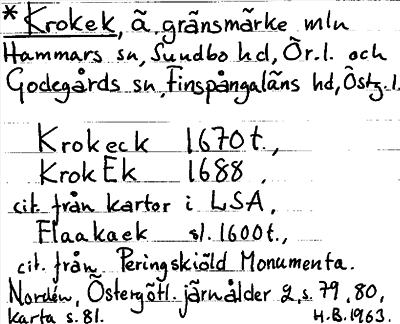 *Krokek, ä. gränsmärke mln
Hammars sn, Sundbo hd, Ör.l. och
Godegårds sn, Finspångaläns hd, Östg.l.
Krokeck 1670t.,
KrokEk 1688,
cit. från kartor i LSA.
Flaakaek sl. 1600t.,
cit. från Peringskiöld Monumenta.
Nordén, Östergötl. järnålder 2, s. 79, 80,
karta s. 81. H.B. 1963.